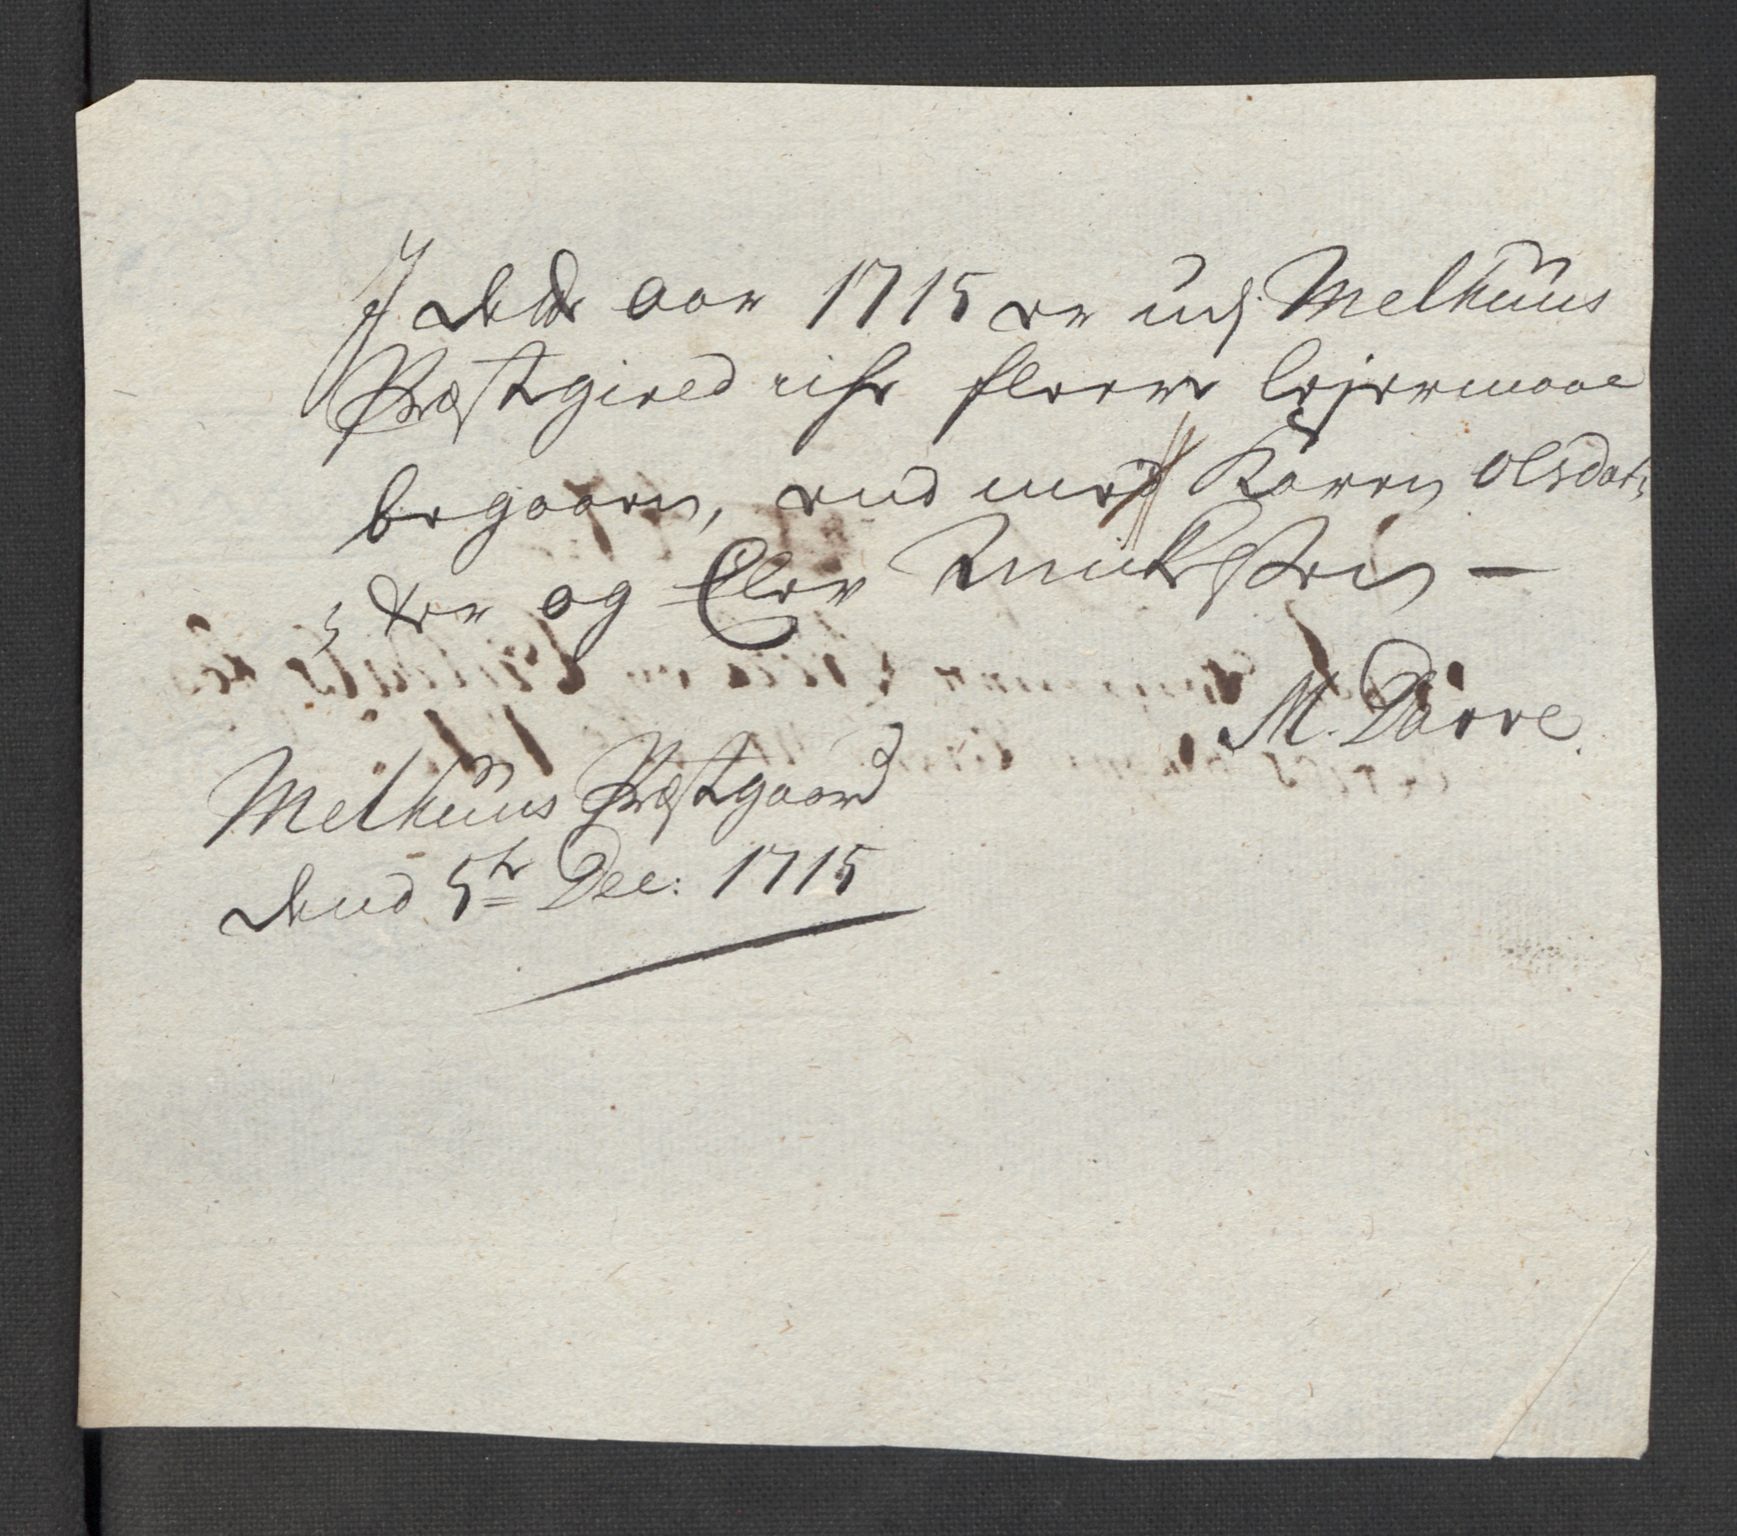 I dette aar 1715 er udj Melhuus
Præstgield icke fleere lejermaal
begaaen, end med Karen Olsdat,
, ter og Elev Knudssen —
M. Darre.
Melhuus Præstgaard
dend 5te Dec: 1715